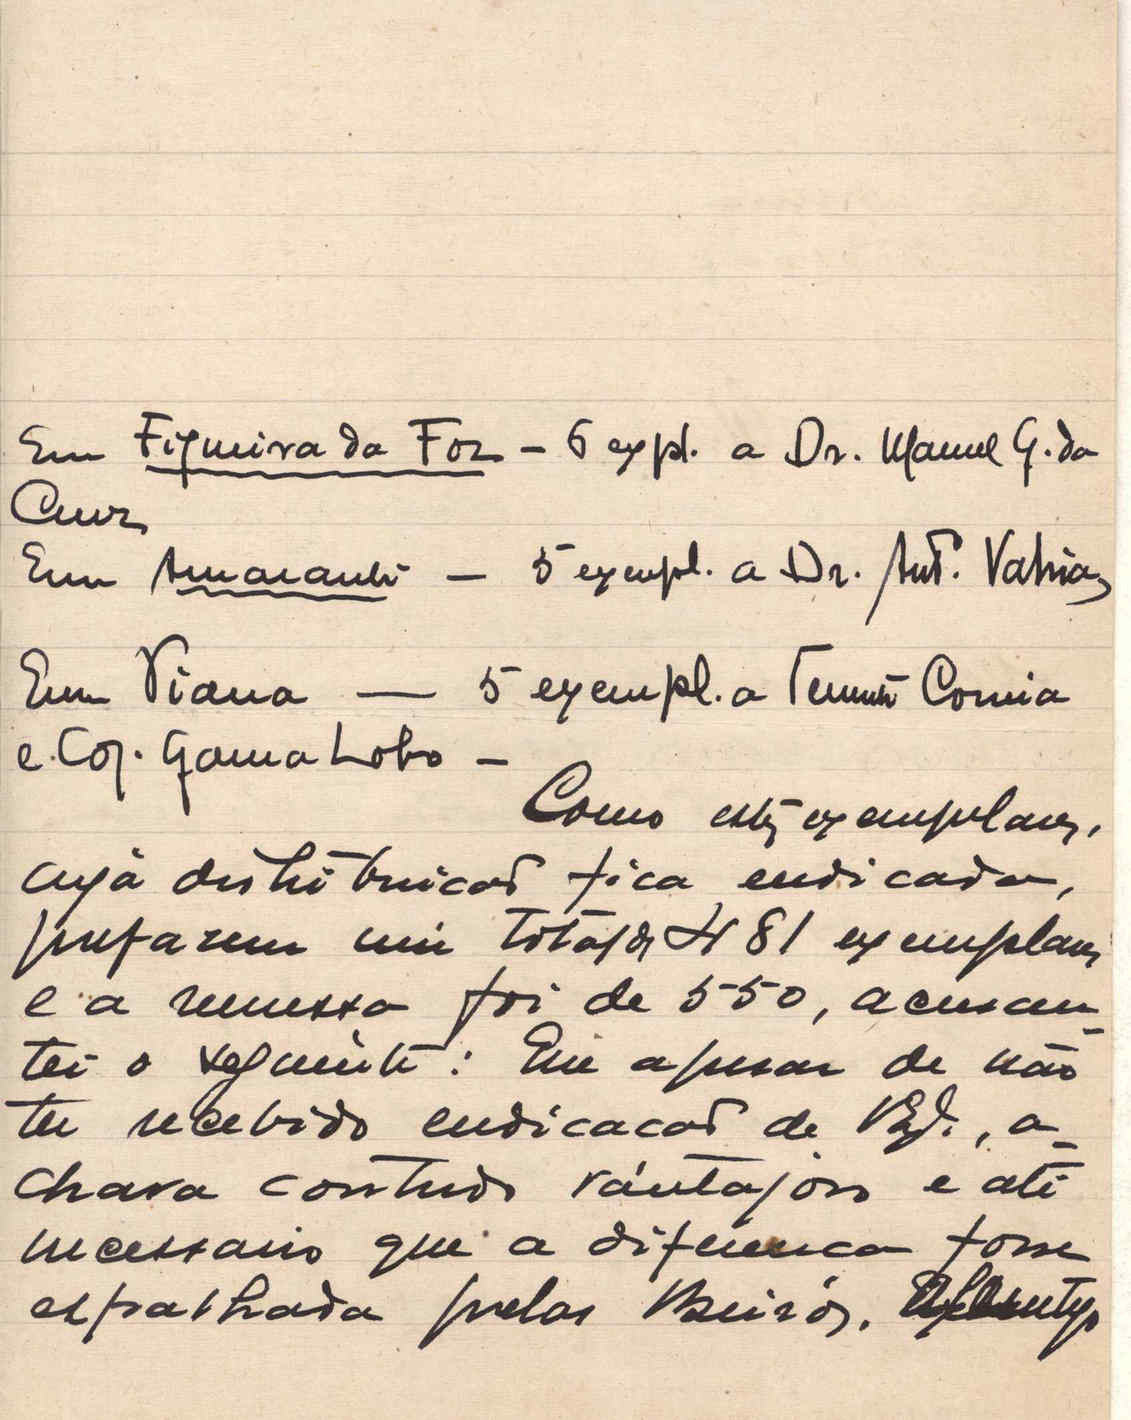 Em Figueira da Foz – 6 expl. a Dr. Manuel G. da
Cruz
Em Amarante — 5 exempl. a Dr. Ant.
Em Viana — 5 exempl. a Tenente Correia
e Cap. Gama Lobo –
Como estes exemplares,
cuja distribuicaõ fica endicada,
prefazem um total de 481 exemplares
e a remessa foi de 550, acrescen-
tei o seguinte: Eu apesar de não
ter recebido endicacaõ de V. Ex.ª, a-
chava contudo vantajoso e até
necessario que a diferenca fosse
espalhada pelas Beiras,